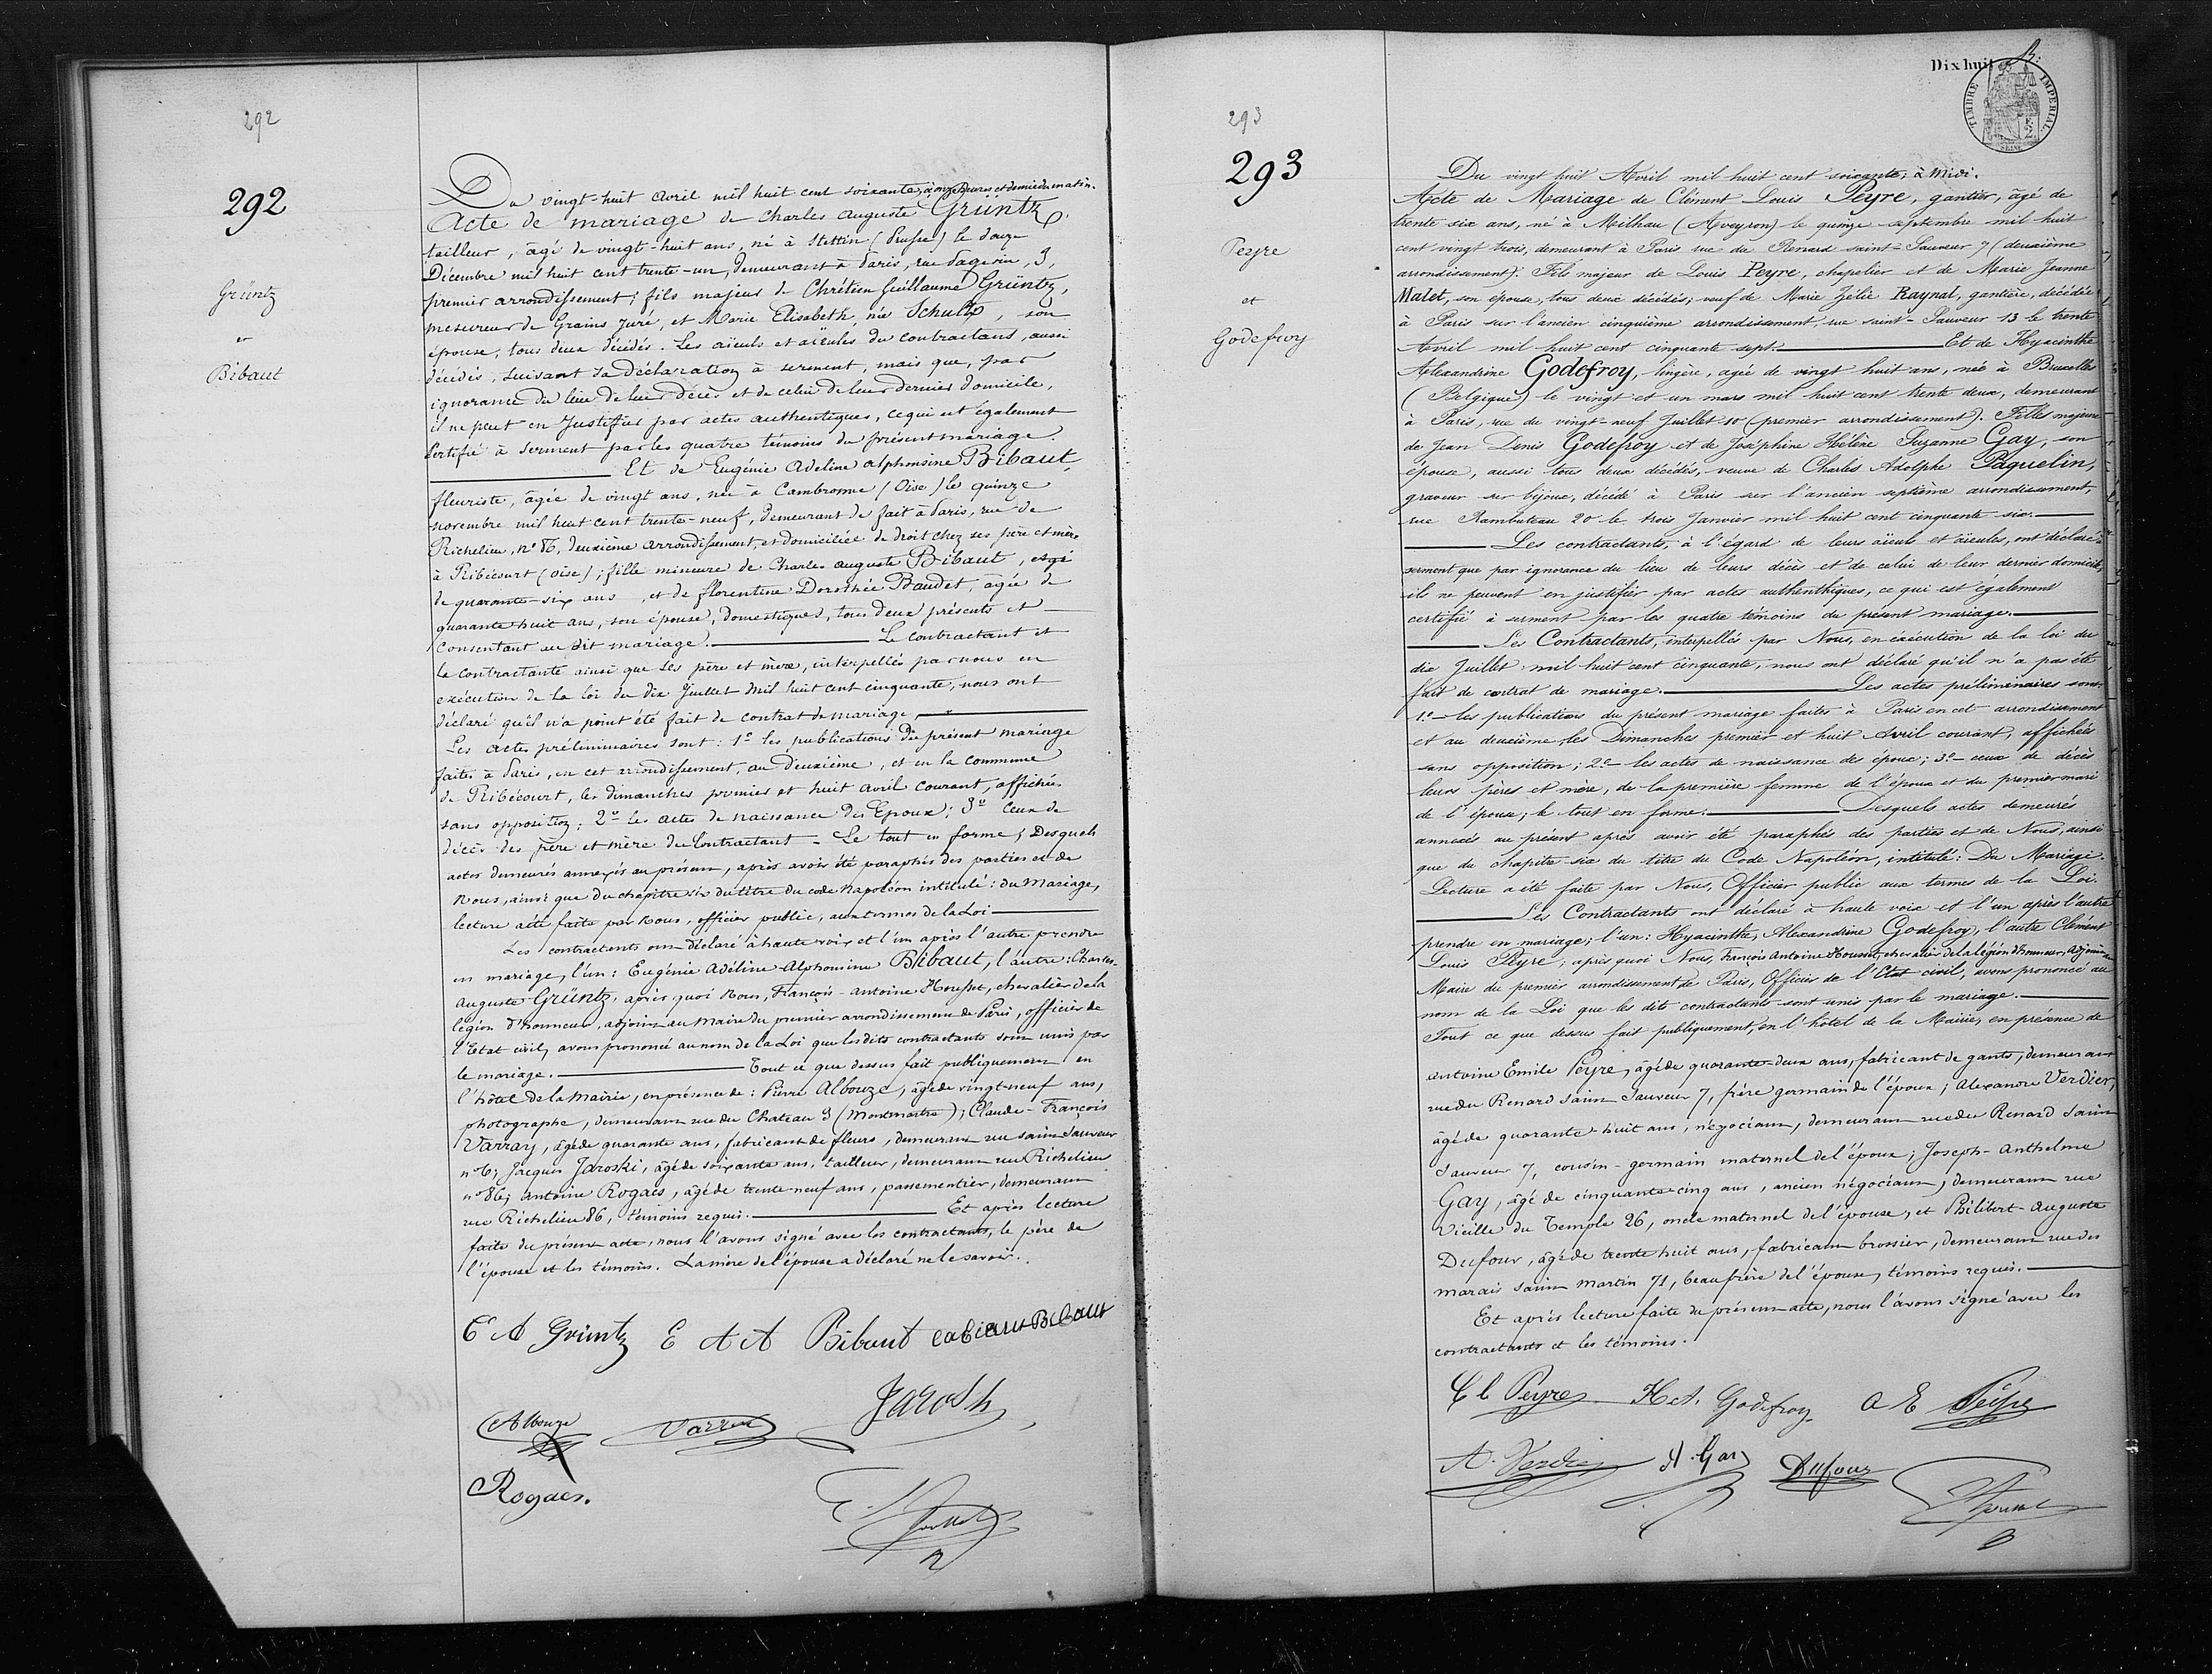 292
292
Grüntz
et
Bibaut
Du vingt-huit avril mil huit cent soixante, à onze heures et demie du matin.
Acte de mariage de Charles Auguste Grüntz,
tailleur, âgé de vingt-huit ans, né à Stettin (Prusse) le douze
Décembre mil huit cent trente-un, demeurant à Paris, rue Pagevin, 3,
premier arrondissement; fils majeur de Chrétien Guillaume Grüntz,
mesureur de Grains Juré, et Marie Elisabeth, née Schultz, son
épouse, tous deux décédés. Les aïeuls et aïeules du contractant, aussi
décédés, suivant sa déclaration à serment, mais que, par
ignorance du lieu de leur décès et de celui de leur dernier domicile,
il ne peut en Justifier par actes authentiques, ce qui est également
Certifié à serment par les quatre témoins du présent mariage.
Et de Eugénie Adeline Alphonsine Bibaut,
fleuriste, âgée de vingt ans, née à Cambronne (Oise) le quinze
novembre mil huit cent trente-neuf, demeurant de fait à Paris, rue de
Richelieu, n° 86, deuxième arrondissement, et domiciliée de droit chez ses père et mère
à Ribécourt (Oise); fille mineure de Charles Auguste Bibaut, âgé
de quarante-six ans, et de florentine Dorothée Baudet, âgée de
quarante huit ans, son épouse, domestiques, tous deux présents et
consentant au dit mariage. Le contractant et
la contractante ainsi que ses père et mère, interpellés par nous en
exécution de la loi du dix Juillet mil huit cent cinquante, nous ont
déclaré qu'il n'a point été fait de contrat de mariage,
Les actes préliminaires sont: 1° les publications du présent mariage
faites à Paris, en cet arrondissement, au deuxième, et en la commune
de Ribécourt, les dimanches premier et huit avril courant, affichées
sans opposition; 2° les actes de naissance des Epoux; 3° Ceux de
décès des père et mère du Contractant - Le tout en forme; Desquels
actes demeurés annexés au présent, après avoir été paraphés des parties et de
Nous, ainsi que du chapitre six du titre du code Napoléon intitulé: du Mariage,
lecture a été faite par Nous, officier public, aux termes de la Loi
Les contractants ont déclaré à haute voix et l'un après l'autre prendre
en mariage, l'un: Eugénie Adéline Alphonsine Bibaut, l'autre: Charles-
Auguste Grüntz, après quoi Nous, François-Antoine Housset, chevalier de la
légion d'honneur, adjoint au Maire du premier arrondissement de Paris, officier de
l'Etat civil, avons prononcé au nom de la Loi que les dits contractants sont unis par
le mariage. Tout ce que dessus fait publiquement en
l'hôtel de la Mairie, en présence de: Pierre Albouze, âgé de vingt-neuf ans,
photographe, demeurant rue du Chateau 9 (Montmartre); Claude-François
Varray, âgé de quarante ans, fabricant de fleurs, demeurant rue saint Sauveur
n° 6; Jacques Jaroski, âgé de soixante ans, tailleur, demeurant rue Richelieu
n° 86; Antoine Rogaes, âgé de trente neuf ans, passementier, demeurant
rue Richelieu 86, témoins requis. Et après lecture
faite du présent acte, nous l'avons signé avec les contractants, le père de
l'épouse et les témoins. La mère de l'épouse a déclaré ne le savoir.
C A Grüntz E A A Bibaut Bibaut
Albouze Varray Jarosk
Rogaes.
Dix huit
TIMBRE IMPERIAL
SEINE
293
293
Peyre
et
Godefroy
Du vingt huit Avril mil huit cent soixante, à Midi.
Acte de Mariage de Clément Louis Peyre, gantier, âgé de
trente six ans, né à Milhau (Aveyron) le quinze septembre mil huit
cent vingt trois, demeurant à Paris rue du Renard saint-Sauveur 7 (deuxième
arrondissement). Fils majeur de Louis Peyre, chapelier et de Marie Jeanne
Malet, son épouse, tous deux décédés; veuf de Marie Zélie Raynal, gantière, décédée
à Paris sur l'ancien cinquième arrondissement, rue saint-Sauveur 13 le trente
Avril mil huit cent cinquante sept. Et de Hyacinthe
Alexandrine Godefroy, lingère, agée de vingt huit ans, née à Bruxelles
(Belgique) le vingt et un mars mil huit cent trente deux, demeurant
à Paris, rue du vingt-neuf Juillet 10 (premier arrondissement). Filles majeure
de Jean Denis Godefroy et de Joséphine Hélène Suzanne Gay, son
épouse, aussi tous deux décédés, veuve de Charles Adolphe Paquelin,
graveur sur bijoux, décédé à Paris sur l'ancien septième arrondissement,
rue Rambuteau 20 le trois Janvier mil huit cent cinquante six.
Les contractants, à l'égard de leurs aïeuls et aïeules, ont déclaré à
serment que par ignorance du lieu de leurs décès et de celui de leur dernier domicile,
ils ne peuvent en justifier par actes authenthiques, ce qui est également
certifié à serment par les quatre témoins du présent mariage.
Les Contractants, interpellés par Nous, en exécution de la loi du
dix Juillet mil huit cent cinquante, nous ont déclaré qu'il n'a pas été
fait de contrat de mariage. Les actes préliminaires sont:
1° les publications du présent mariage faites à Paris en cet arrondissement
et au deuxième, les Dimanches premier et huit Avril courant, affichées
sans opposition; 2° les actes de naissance des époux; 3° ceux de décès
leurs pères et mère, de la première femme de l'époux et du premier mari
de l'épouse; le tout en forme. Desquels actes demeurés
annexés au présent après avoir été paraphés des parties et de Nous, ainsi
que du chapitre six du titre du Code Napoléon, intitulé: Du Mariage.
Lecture a été faite par Nous, Officier public aux termes de la Loi.
Les Contractants ont déclaré à haute voix et l'un après l'autre
prendre en mariage; l'un: Hyacinthe, Alexandrine Godefroy, l'autre Clément
Louis Peyre; après quoi Nous, François Antoine Housset, chevalier de la légion d'honneur, adjoint au
Maire du premier arrondissement de Paris, Officier de l'Etat civil, avons prononcé au
nom de la Loi que les dits contractants sont unis par le mariage.
Tout ce que dessus fait publiquement, en l'hôtel de la Mairie, en présence de
Antoine Emile Peyre, âgé de quarante-deux ans, fabricant de gants, demeurant
rue du Renard saint Sauveur 7, frère germain de l'époux; Alexandre Verdier,
âgé de quarante huit ans, négociant, demeurant rue du Renard saint
Sauveur 7, cousin-germain maternel de l'époux; Joseph-Anthelme
Gay, âgé de cinquante-cinq ans, ancien négociant, demeurant rue
Vieille du Temple 26, oncle maternel de l'épouse, et Philibert-Auguste
Dufour, âgé de trente huit ans, fabricant brossier, demeurant rue des
marais saint Martin 71, beau frère de l'épouse, témoins requis.
Et après lecture faite du présent acte, nous l'avons signé avec les
contractants et les témoins.
C L Peyre H A. Godefroy A E Peyre
A. Verdier A. Gay Dufour
Housset